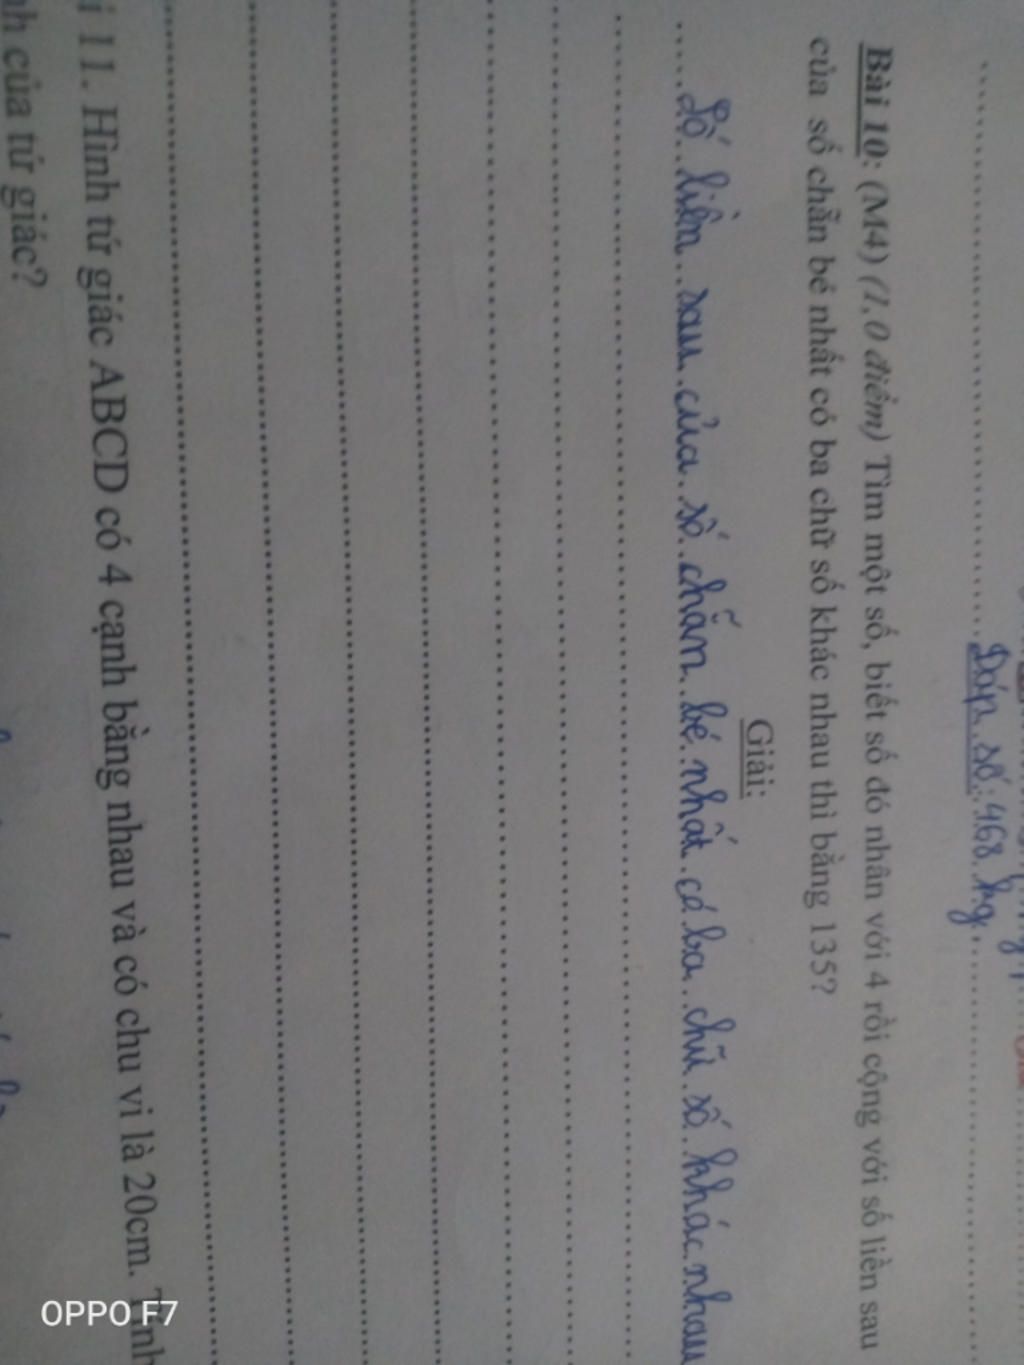 Đáp số: 468 kg
Bài 10: (M4) (1,0 điểm) Tìm một số, biết số đó nhân với 4 rồi cộng với số liền sau
của số chẵn bé nhất có ba chữ số khác nhau thì bằng 135?
Giải:
Số liền sau của số chẵn bé nhất có ba chữ số khác nhau
i 11. Hình tứ giác ABCD có 4 cạnh bằng nhau và có chu vi là 20cm. Tính
nh của tứ giác?
OPPO F7